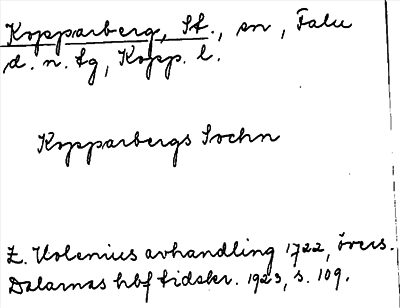 Kopparberg, St., sn, Falu
d. n. tg, Kopp. l.
Kopparbergs Sochn
Z. Holenius avhandling 1722, övers.
Dalarnas hbf tidskr. 1923, s. 109.